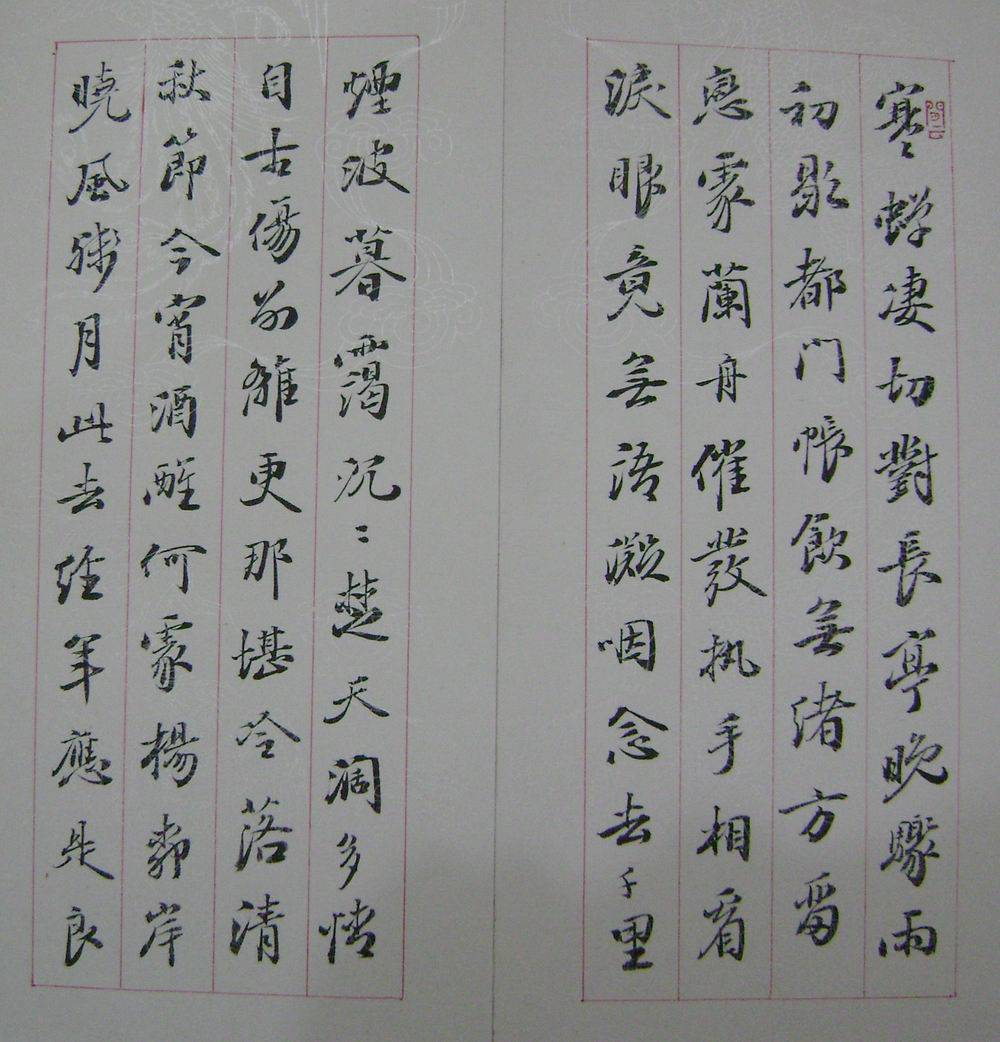 寒蝉凄切對長亭晚驟雨
初歇都門帳飲無緒方留
戀處蘭舟催發執手相看
淚眼竟無語凝咽念去千里
煙波暮靄沉〻楚天闊多情
自古傷別離更那堪冷落清
秋節今宵酒醒何處楊柳岸
曉風殘月此去經年應是良